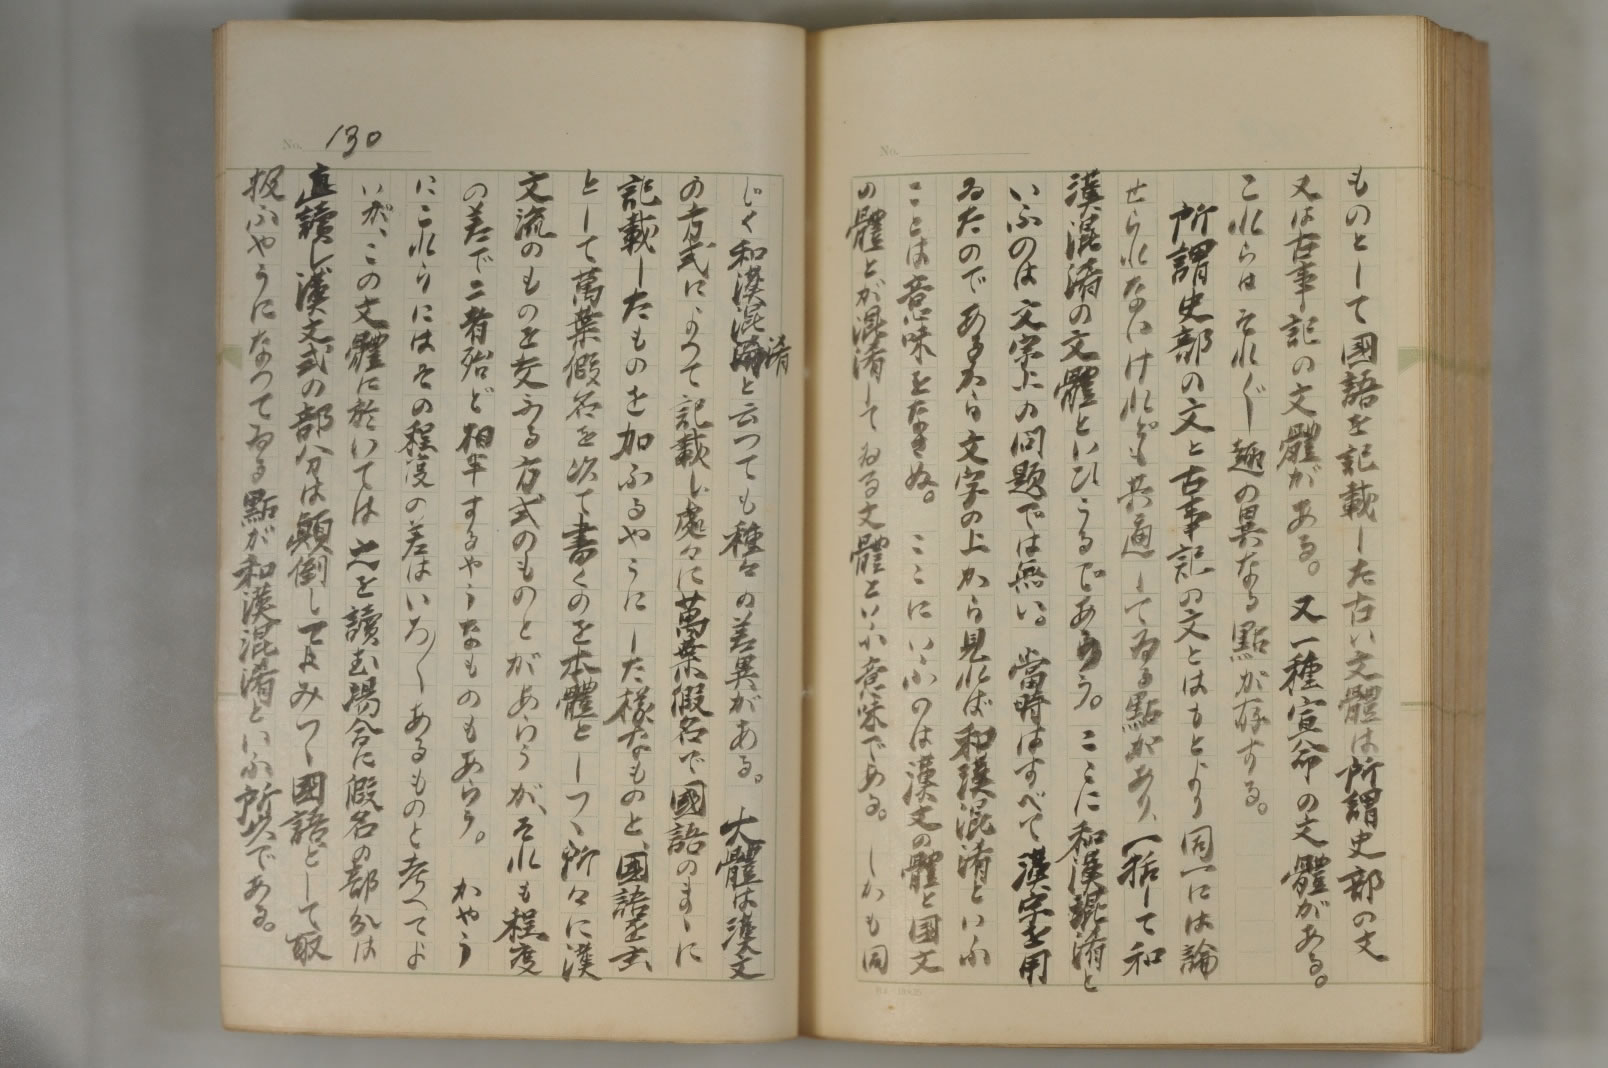 ものとして國語を記載した古い文體は所謂史部の文
又は古事記の文體がある。又一種宣命の文體がある。
これらはそれ〲趣の異なる點が存する。
所謂史部の文と古事記の文とはもとより同一には論
せられないけれども共通してゐる點があり、一括して和
漢混淆の文體といひうるであらう。ここに和漢混淆と
いふのは文字上の問題では無い。當時はすべて漢字を用
ゐたのであるから文字の上から見れば和漢混淆といふ
ことは意味をなさぬ。ここにいふのは漢文の體と国文
の體とが混淆してゐる文體といふ意味である。しかも同
No. 130
じく和漢混淆と云つても種々の差異がある。大體は漢文
淆
の方式によつて記載し處々に萬葉假名で國語のまゝに
記載したものを加ふるやうにした様なものと、國語を主
として萬葉假名を以て書くのを本體としつゝ所々に漢
文流のものを交ふる方式のものとがあらうが、それも程度
の差で二者殆ど相半するやうなものもあらう。かやう
にこれらにはその程度の差はいろ〱あるものと考へてよ
いが、この文體に於いては之を讀む場合に假名の部分は
直讀し漢文式の部分は顛倒してよみつゝ國語として取
扱ふやうになつてゐる點が和漢混淆といふ所以である。
No.